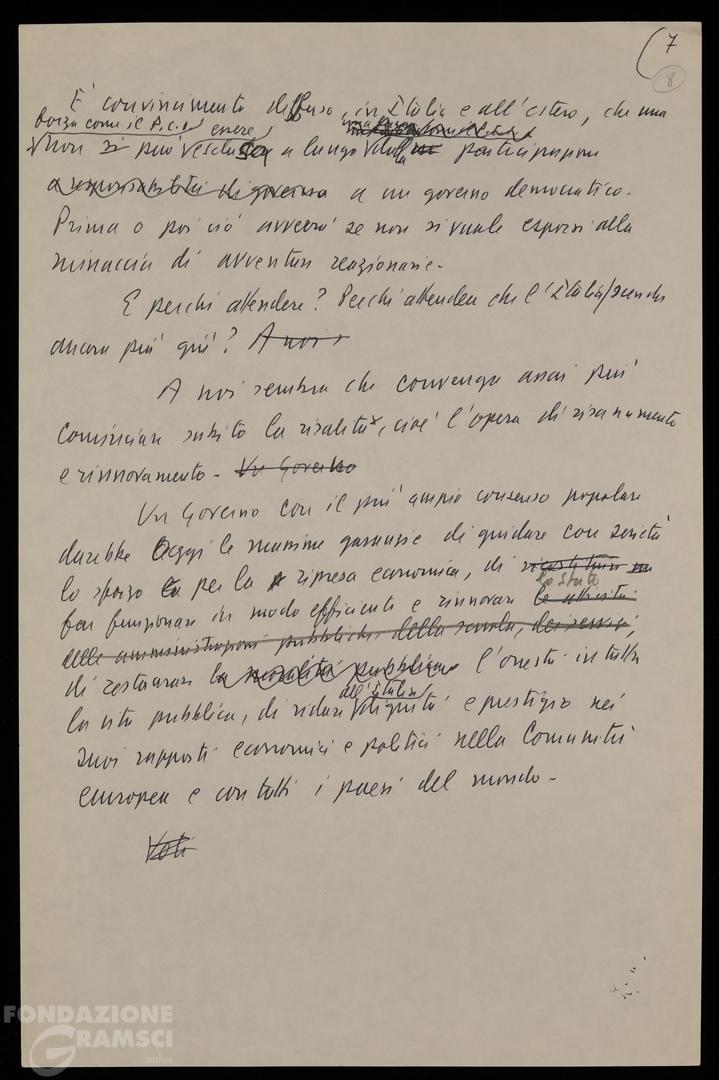 7
8
E' convincimento diffuso, in Italia e all'estero, che una
forza come il P.C.I. essere
non si può esclusa a lungo dalla partecipazione
a responsabilità di governo a un governo democratico.
Prima o poi ciò avverrà se non si vuole esporsi alla
minaccia di avventure reazionarie.
E perché attendere? Perché attendere che l'Italia scenda
ancora più giù? A noi
A noi sembra che convenga assai più
cominciare subito la risalita, cioè l'opera di risanamento
e rinnovamento. Un Governo
Un Governo con il più ampio consenso popolare
darebbe oggi le massime garanzie di guidare con serietà
lo sforzo per la ripresa economica, di
lo Stato
far funzionare in modo efficiente e rinnovare
delle amministrazioni pubbliche, della scuola, dei servizi,
di restaurare la moralità pubblica l'onestà in tutta
dell'Italia
la vita pubblica, di ridare dignità e prestigio nei
suoi rapporti economici e politici nella Comunità
europea e con tutti i paesi del mondo.
Voti
FONDAZIONE
GRAMSCI
onlus